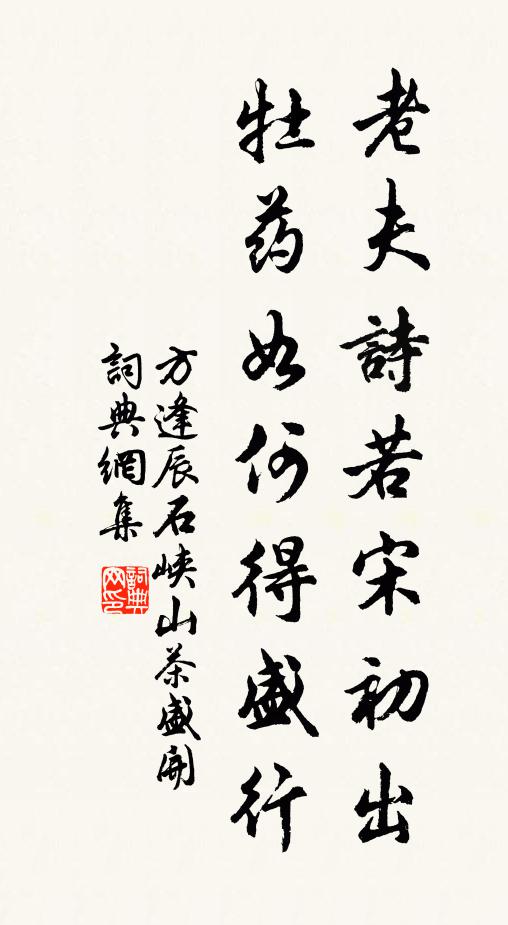 老夫詩若宋初出
牡药如何得盛行
方逢辰石峽山茶盛開
詞典網集
詞典網印